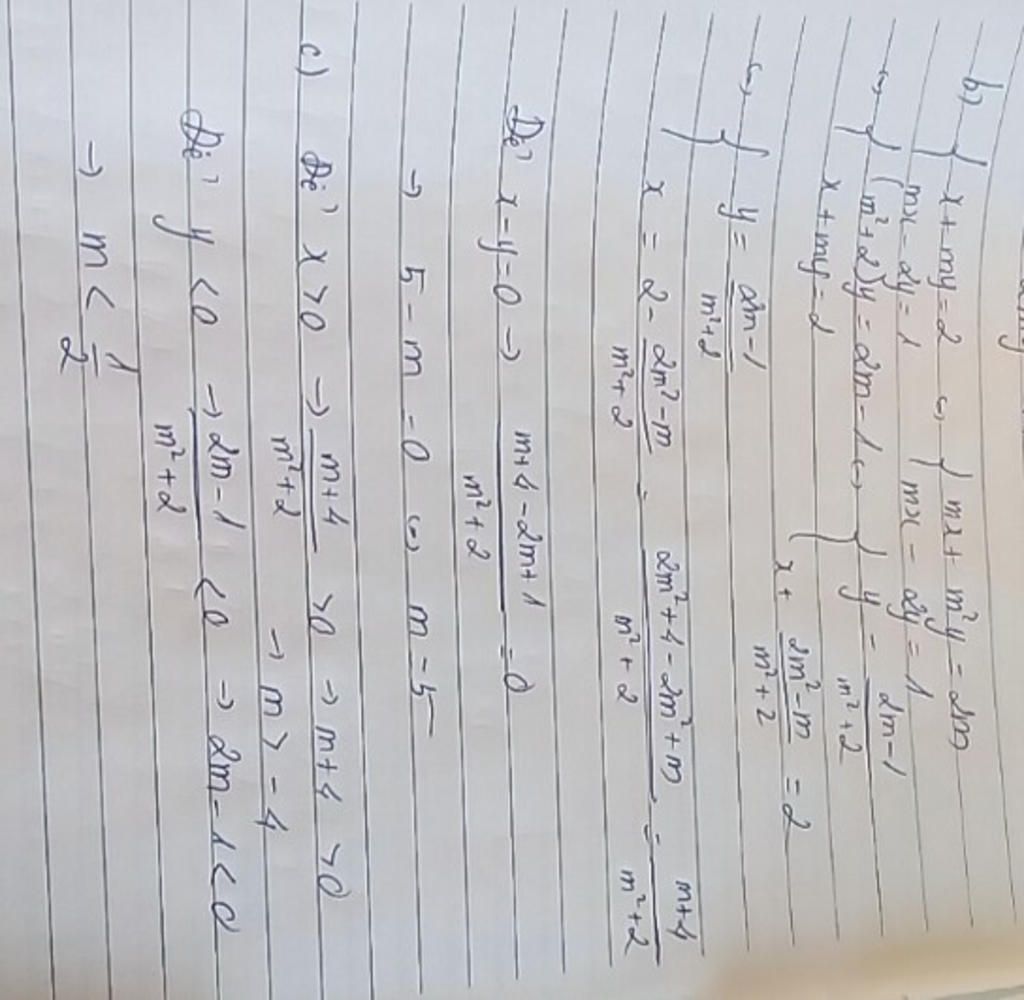 b) { x + my = 2 ⇔ { mx + m²y = 2m
mx - 2y = 1 { mx - 2y = 1
⇔ { (m² + 2)y = 2m - 1 ⇔ { y = (2m - 1)/(m² + 2)
x + my = 2 { x + (2m² - m)/(m² + 2) = 2
⇔ { y = (2m - 1)/(m² + 2)
x = 2 - (2m² - m)/(m² + 2) = (2m² + 4 - 2m² + m)/(m² + 2) = (m + 4)/(m² + 2)
Để x - y = 0 → (m + 4 - 2m + 1)/(m² + 2) = 0
→ 5 - m = 0 ⇔ m = 5
c) Để x > 0 → (m + 4)/(m² + 2) > 0 → m + 4 > 0
→ m > -4
Để y < 0 → (2m - 1)/(m² + 2) < 0 → 2m - 1 < 0
→ m < 1/2